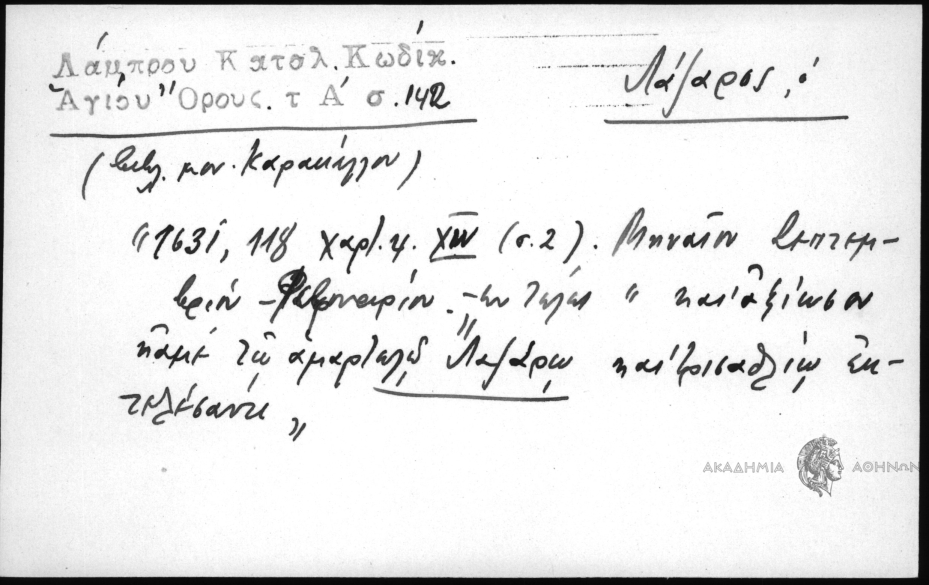 Λάμπρου Καταλ. Κωδίκ.
Ἁγίου Ὄρους. τ Α' σ. 142
Λάζαρος, ὁ
(βιβλ. μον. Καρακάλλου)
"1631, 118 χαρτ. 4. XIV (σ. 2). Μηναῖον Σεπτεμ-
βρίου - Φεβρουαρίου. ἐν τέλει " καὶ ἀξίωσον
κἀμὲ τῷ ἁμαρτωλῷ Λαζάρῳ καὶ τρισαθλίῳ ἐκ-
τελέσαντι "
ΑΚΑΔΗΜΙΑ ΑΘΗΝΩΝ